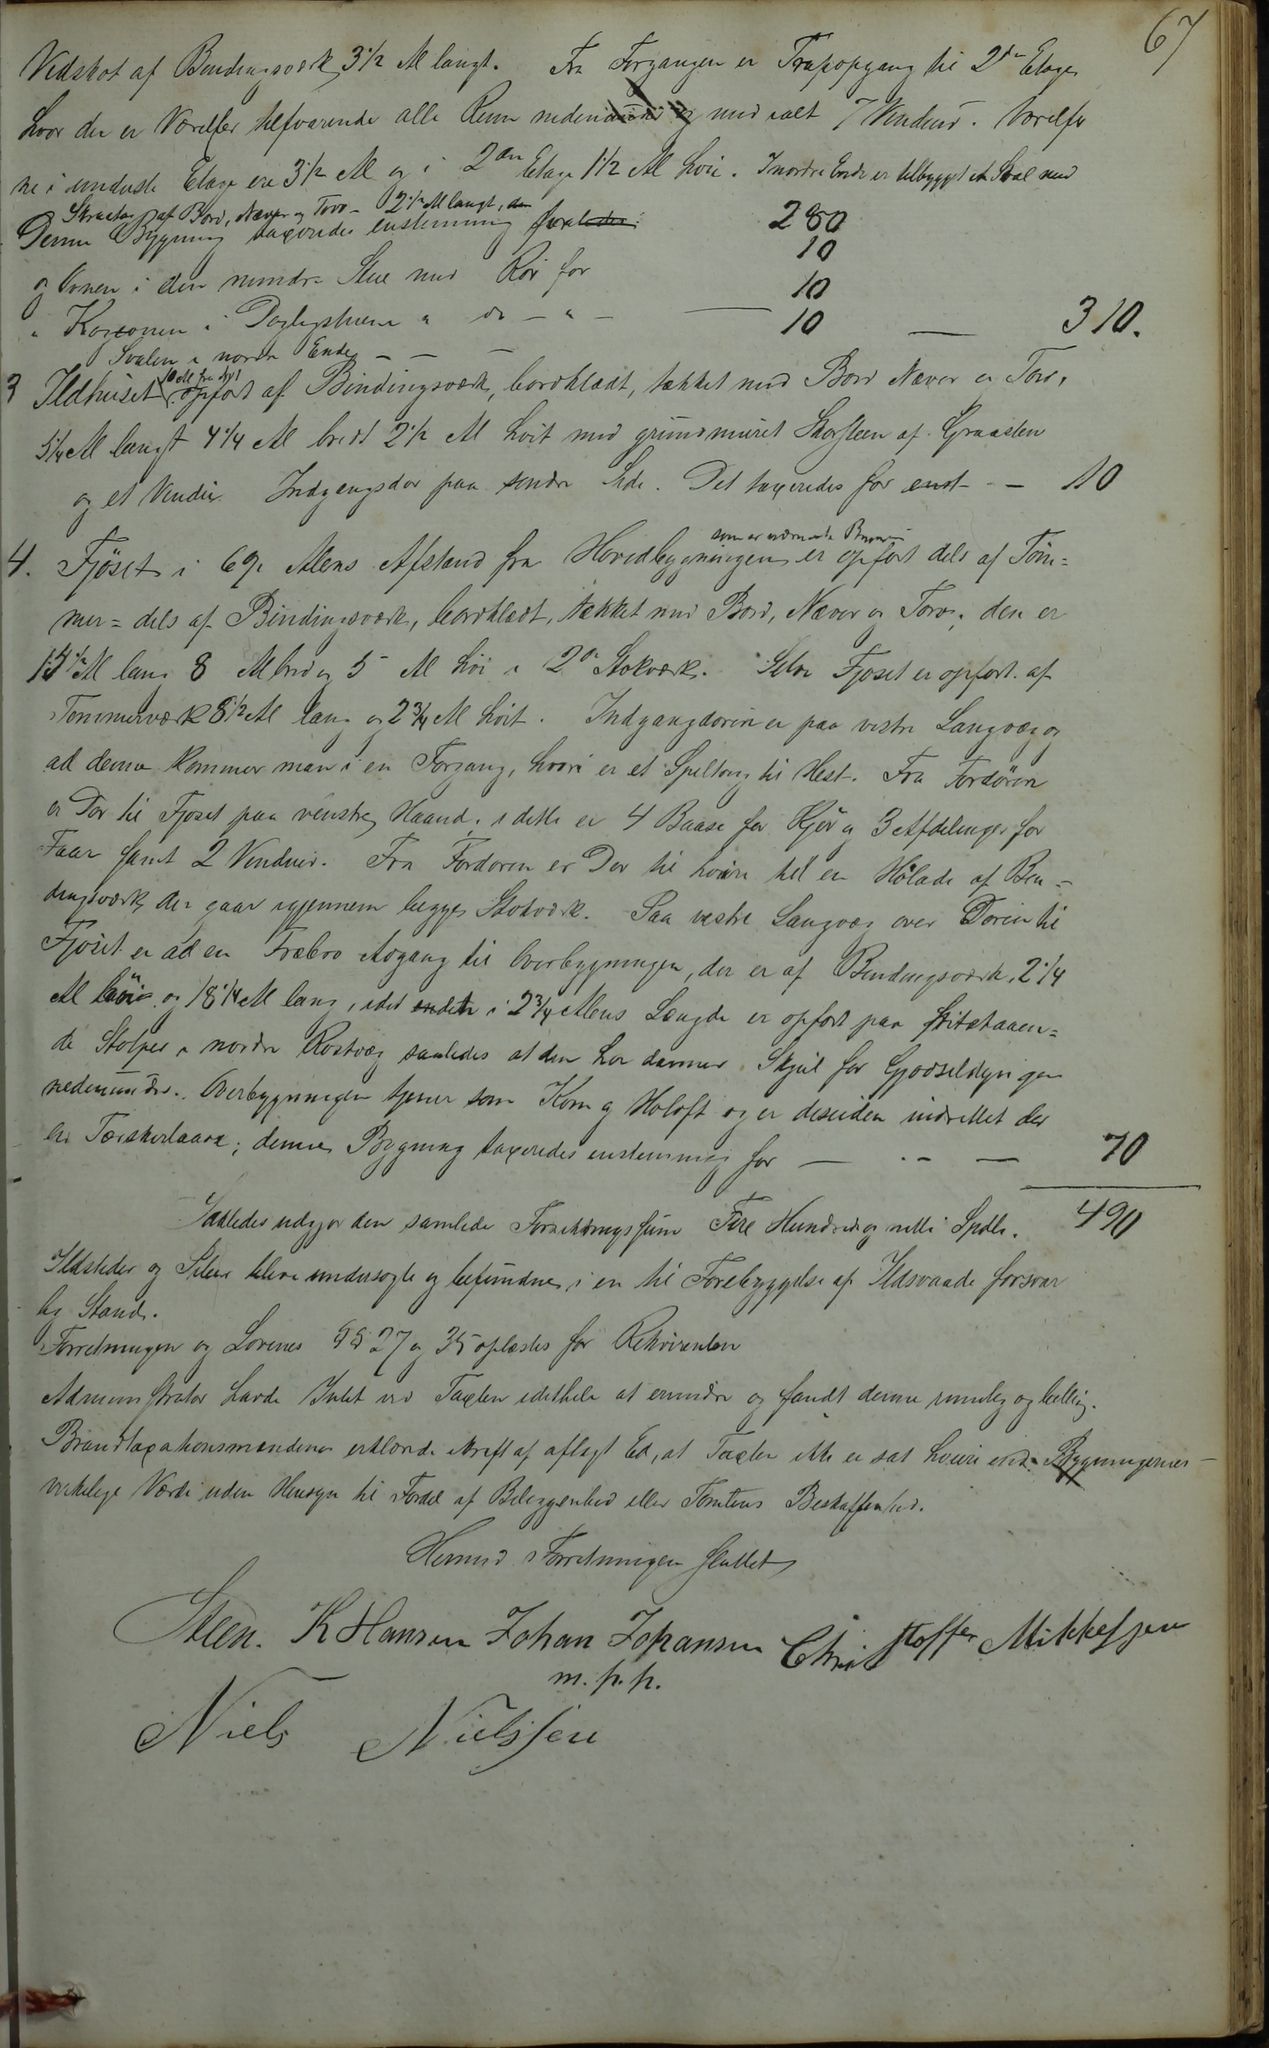 67
Vedskot af Bindingsværk 3 1/2 Al langt. Fra Forgangen er Trapopgang til 2den Etage
hvor der er Værelser tilsvarende alle Rum nedenunder og med ialt 7 Vinduer. Værelser
ne i underste Etage ere 3 1/2 Al og i 2den Etage 1 1/2 Al høie. I nordre Ende er tilbygget et Sval med
Skraatag af Bord, Næver og Torv - 2 1/2 Al langt, den
Denne Bygning taxeredes enstemmig for 280
10
og Ovnen i den mindre Stue med Rør for 10
" Kogeovnen i Dagligstuen " do - " - 10 — 310.
Svalen i nordre Ende - - -
10 Al fra
3 Ildhuset opført af Bindingsværk, bordklædt, tækket med Bord Næver og Torv,
5 1/4 Al langt 4 1/4 Al bredt 2 1/2 Al høit med grundmuret Skorsteen af Graasten
og et Vindu. Indgangsdør paa søndre Side. Det taxeredes for enst - - 10
som er nærmeste
4. Fjøset i 69 Alens Afstand fra Hovedbygningen er opført dels af Töm=
mer= dels af Bindingsværk, bordklædt, tækket med Bord, Næver og Torv; den er
Al lang 8 Al bred og 5 Al høi i 2de Stokværk. Selve Fjøset er opført af
Tømmerværk 8 1/2 Al lang og 2 3/4 Al høit. Indgangdøren er paa vestre Langvæg og
ad denne kommer man i en Forgang, hvori er et Spiltoug til Hest. Fra Fordören
er Dør til Fjøset paa venstre Haand; i dette er 4 Baase for Kjør og 3 Afdelinger for
Faar samt 2 Vinduer. Fra Fordøren er Dør til høire til en Hølade af Bin=
dingsværk, der gaar igjennem begge Stokværk. Paa vestre Langvæg over Døren til
Fjøset er ad en Træbro Adgang til Overbygningen, der er af Bindingsværk, 2 1/4
Al høi og 18 1/4 Al lang, idet i 2 3/4 Alens Længde er opført paa fritstaaen=
de Stolper i nordre Rostvæg saaledes at den her danner Skjul for Gjødseldyngen
nedenunder. Overbygningen tjener som Korn og Høloft og er desuden indrettet der
en Tærskerlaave; denne Bygning taxeredes enstemmig for — - - — 70
Saaledes udgjør den samlede Forsikringssum Fire Hundrede og nitti Spdlr. 490
Ildsteder og Piber bleve undersøgte og befundne i en til Forebyggelse af Ildsvaade forsvar
lig Stand.
Forretningen og Lovenes §§ 27 og 35 oplæstes for Rekvirenten
Administrator havde Intet ved Taxten idethele at erindre og fandt denne rimelig og billig.
Brandtaxationsmændene erklærede i Kraft af aflagt Ed, at Taxten ikke er sat høiere end Bygningernes
virkelige Værdi uden Hensyn til Fordel af Beliggenhed eller Tomtens Beskaffenhed.
Hermed Forretningen sluttet
Steen. K Hansen Johan Johansen Christoffer Mikkelsen
m. p. p.
Niels Nielssen